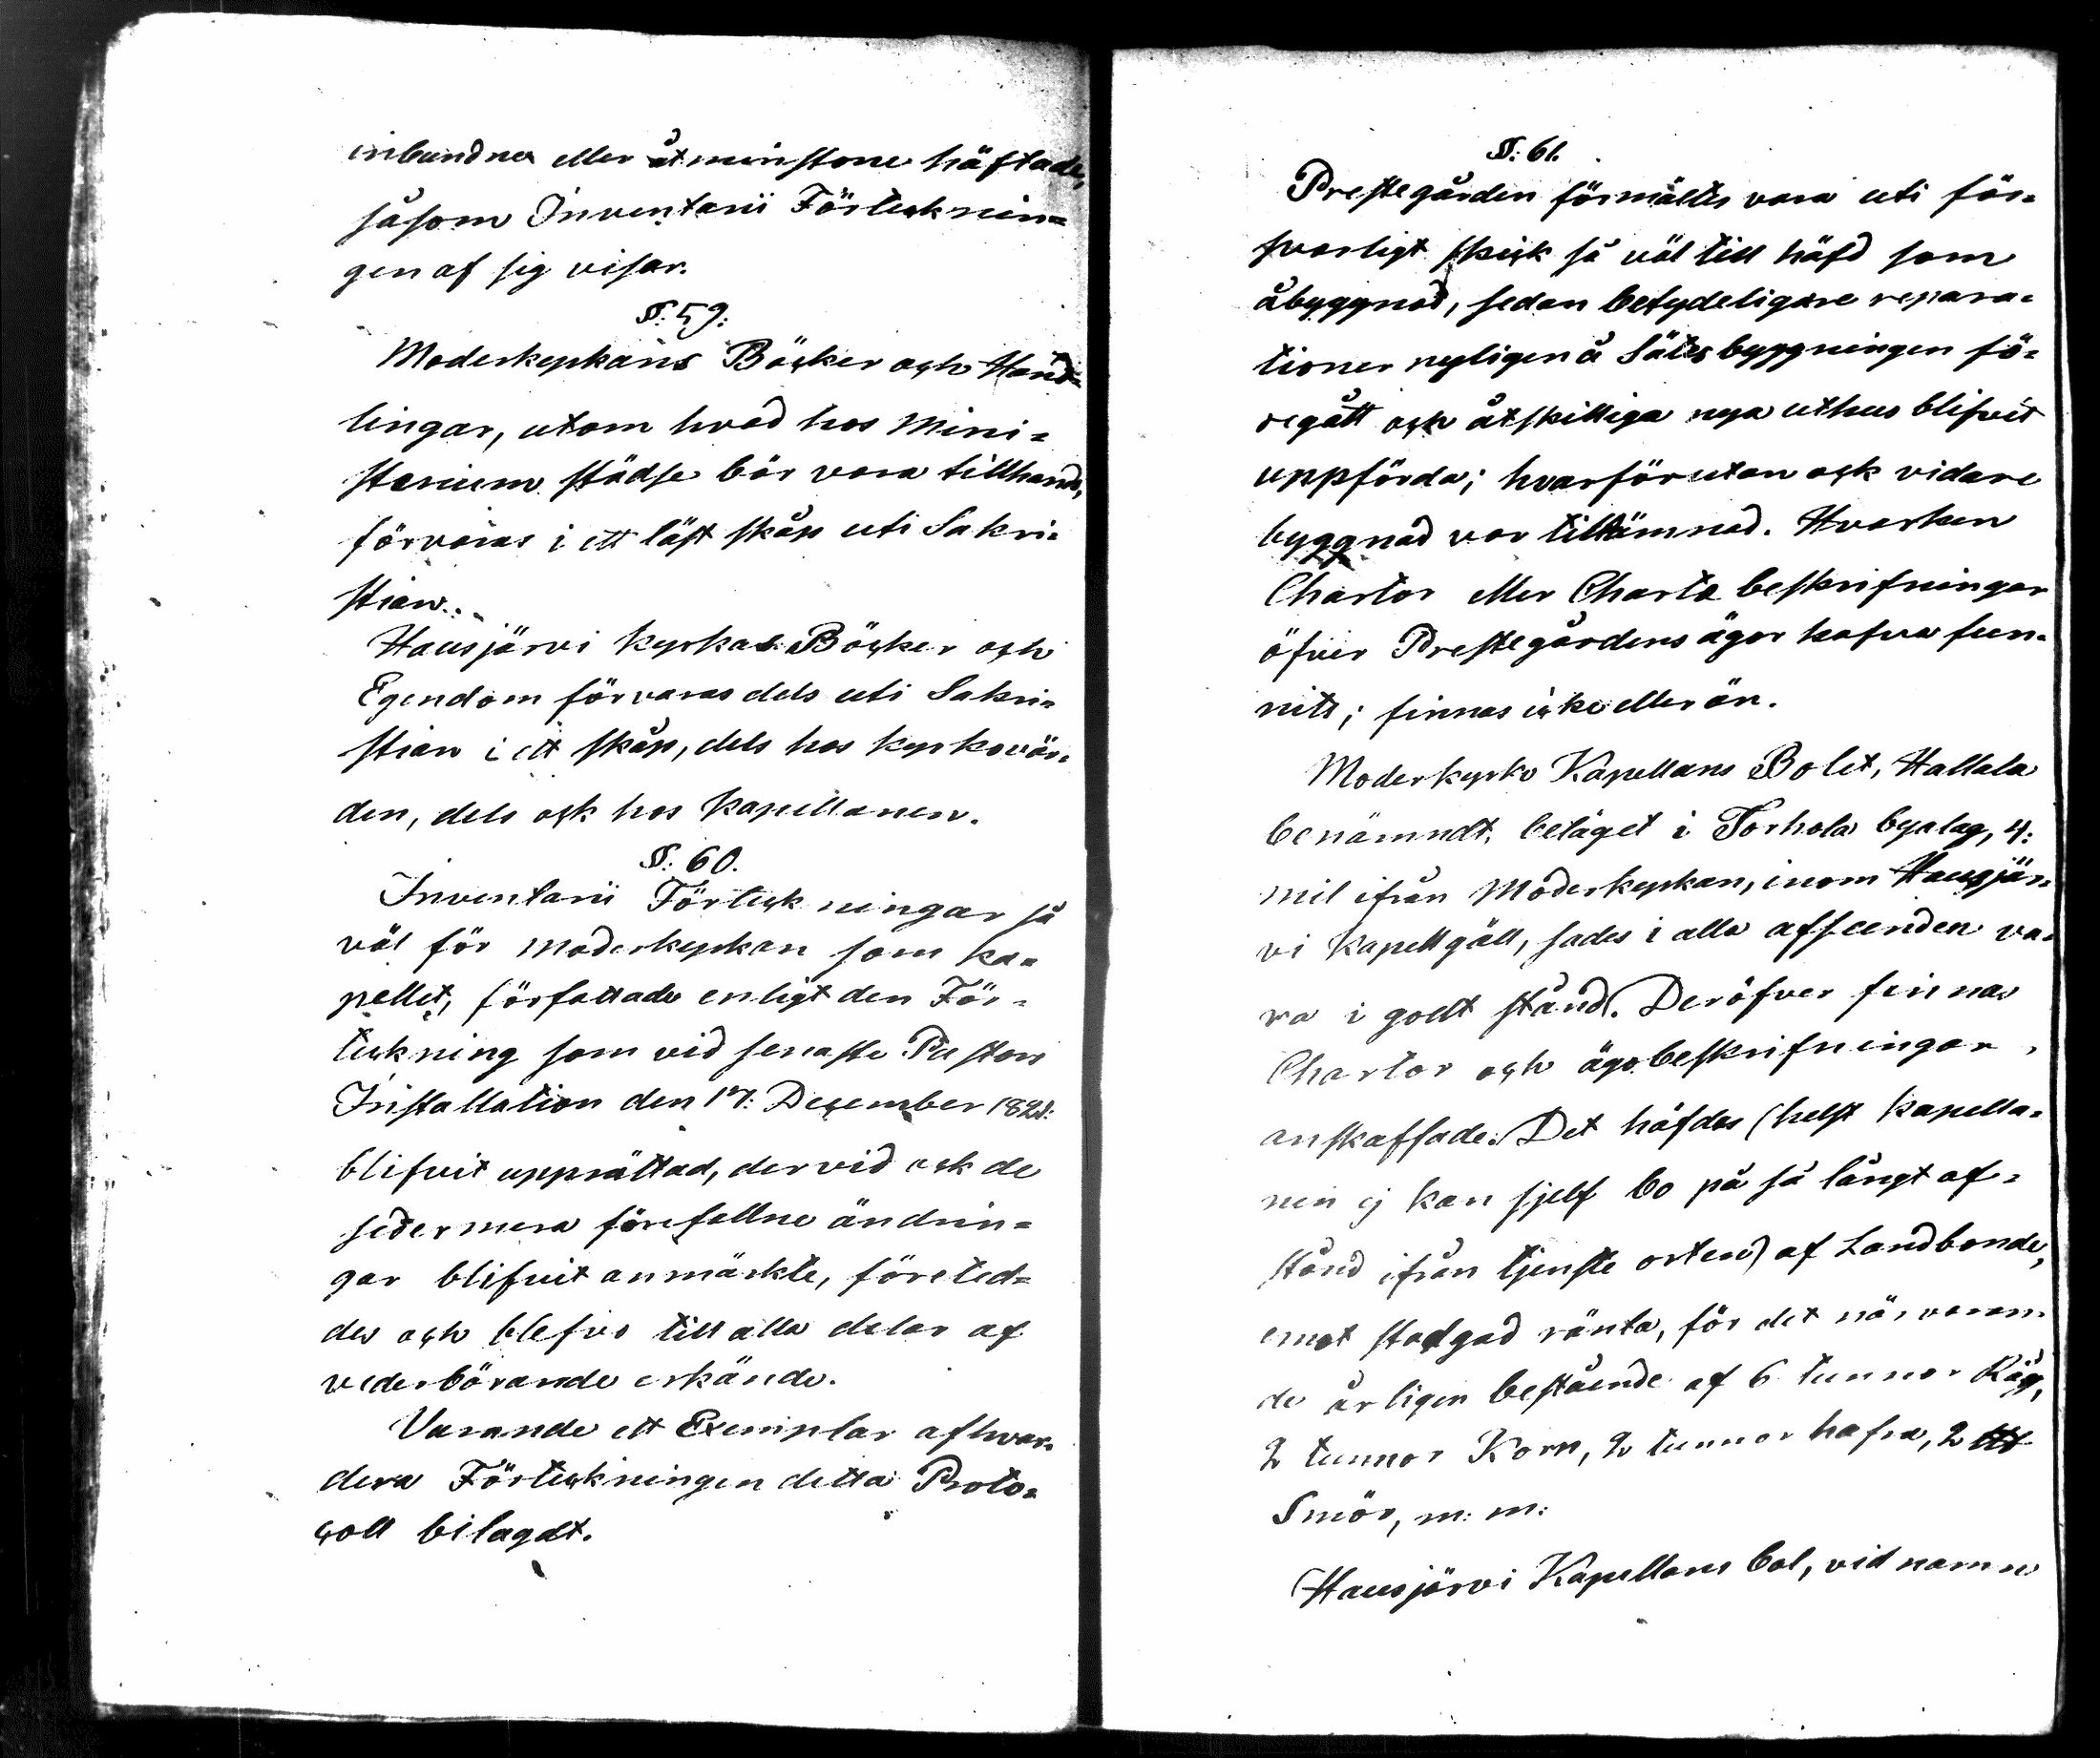 inbundna eller åtminstone häftade,
såsom Inventarii Förtecknin=
gen af sig visar.
§: 59:
Moderkyrkans Böcker och Hand=
lingar, utom hvad hos Mini=
sterium städse bör vara tillhanda,
förvaras i ett låst skåp uti Sakri=
stian.
Hausjärvi kyrkas Böcker och
Egendom förvaras dels uti Sakri=
stian i ett skåp, dels hos kyrkovär=
den, dels ock hos Kapellanen.
§: 60.
Inventarii Förteckningar så
väl för moderkyrkan som ka=
pellet, författade enligt den För=
teckning som vid senaste Pastors
Installation den 17: December
blifvit upprättad, dervid ock de
sedermera förefallne ändrin=
gar blifvit anmärkte, företed=
des och blefvo till alla delar af
vederbörande erkände.
Varande ett Exemplar afhvar=
dera Förteckningen detta Proto=
coll bilagdt.
§: 61.
Prestegården förmältes vara uti för=
svarligt skick så väl till häfd som
åbyggnad, sedan betydeligare repara=
tioner nyligen å Sätesbyggningen fö=
regått och åtskilliga nya uthus blifvit
uppförda; hvarförutan ock vidare
byggnad var tillämnad. Hvarken
Chartor eller Charte beskrifningar
öfver Prestegårdens ägor hafva fun=
nits; finnas icke eller än.
Moderkyrko Kapellans Bolet, Hallala
benämndt, beläget i Torhola byalag, 4:
mil ifrån Moderkyrkan, inom Hausjär=
vi Kapellgäll, sades i alla afseenden va=
ra i godt stånd. Deröfver finnas
Chartor och ägobeskrifningar
anskaffade. Det häfdas (helst kapella=
nen ej kan sjelf bo på så långt af=
stånd ifrån tjenste orten) af Landbonde,
emot stadgad ränta, för det närvaran=
de årligen bestående af 6 tunnor Råg,
2 tunnor Korn, 2 tunnor hafra, 2
Smör, m: m:
Hausjärvi Kapellans bol, vid namn